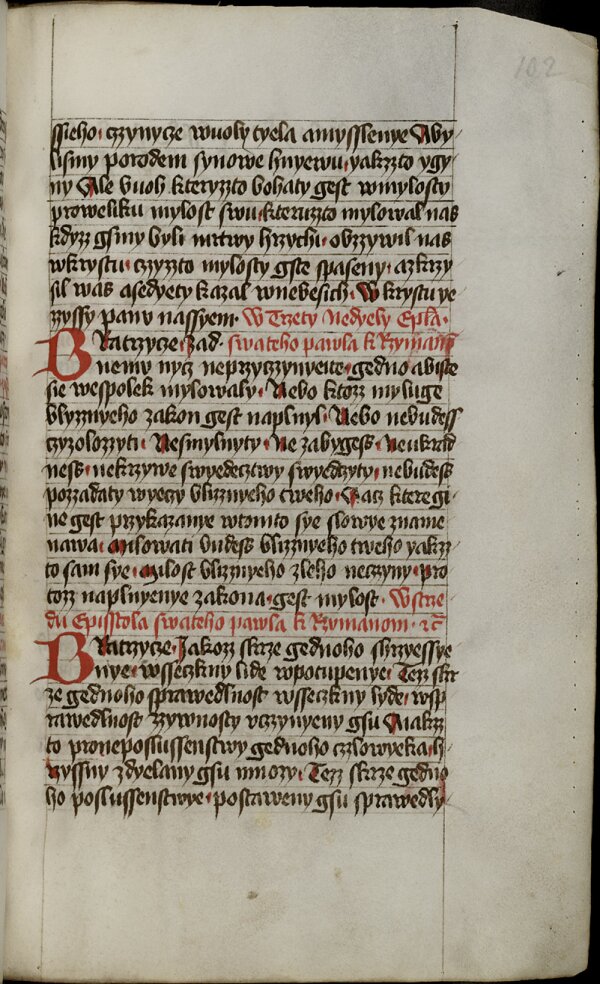 102
ssieho czynycze wuoly tyela amysslenye Aby
lismy porodem synowe hnyewu yakzzto ygy
ny Ale buoh kteryzto bohaty gest wmylosty
proweliku mylost swu kteruzto mylowal nas
kdyz gsmy byli mrtwy hrzychi obzzywil nas
wkrystu czyzzto mylosty gste spaseny azkrzy
sil was asedyety kazal wnebesich W krystu ye
zyssy panu nassyem W Trzety Nedyely Epla
Bratrzycze zad swateho pawla k Rzyman
nemu nycz neprzyczynyeite gedno abiste
sie wespolek mylowaly Nebo ktoz myluge
blyznyeho zakon gest naplnyl Nebo nebudess
czyzolozyti Nesmylnyty Ne zabygess Neukrad
ness nekrzywe swyedecztwy swyedczyty nebudess
pozzadaty wyeczy blizznyeho tweho Pacz kteregi
ne gest przykazanye wtomto sye slowye zname
nawa milowati budess blizznyeho tweho yakzz
to sam sye milost blizznyeho zleho neczyny pro
toz naplnyenye zakona gest mylost Wstrze
du Episstola swateho pawla k Rzymanom
Bratrzycze Jakoz skrze gednoho shrzyessye
nye wsseczkny lide wpotupenye Tez skr
ze gednoho sprawedlnost wsseczkny lyde wsp
rawedlnost zzywnosty vczynyeny gsu Nakzz
to proneposlussenstwy gednoho czlowyeka h
rzyssny zdyelany gsu mnozy Tez skrze gedno
ho poslussenstwye postaweny gsu sprawedly